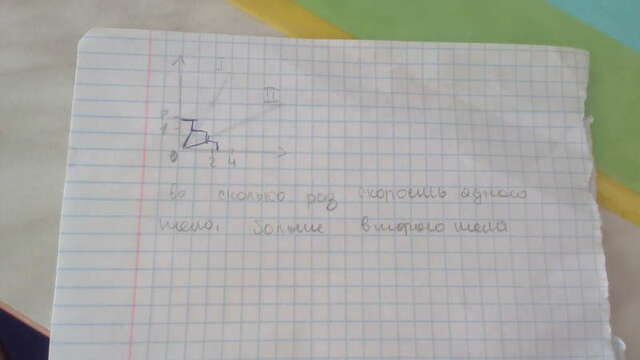 I
II
1
0 2 4
во сколько раз скорость одного
тела, больше второго тела